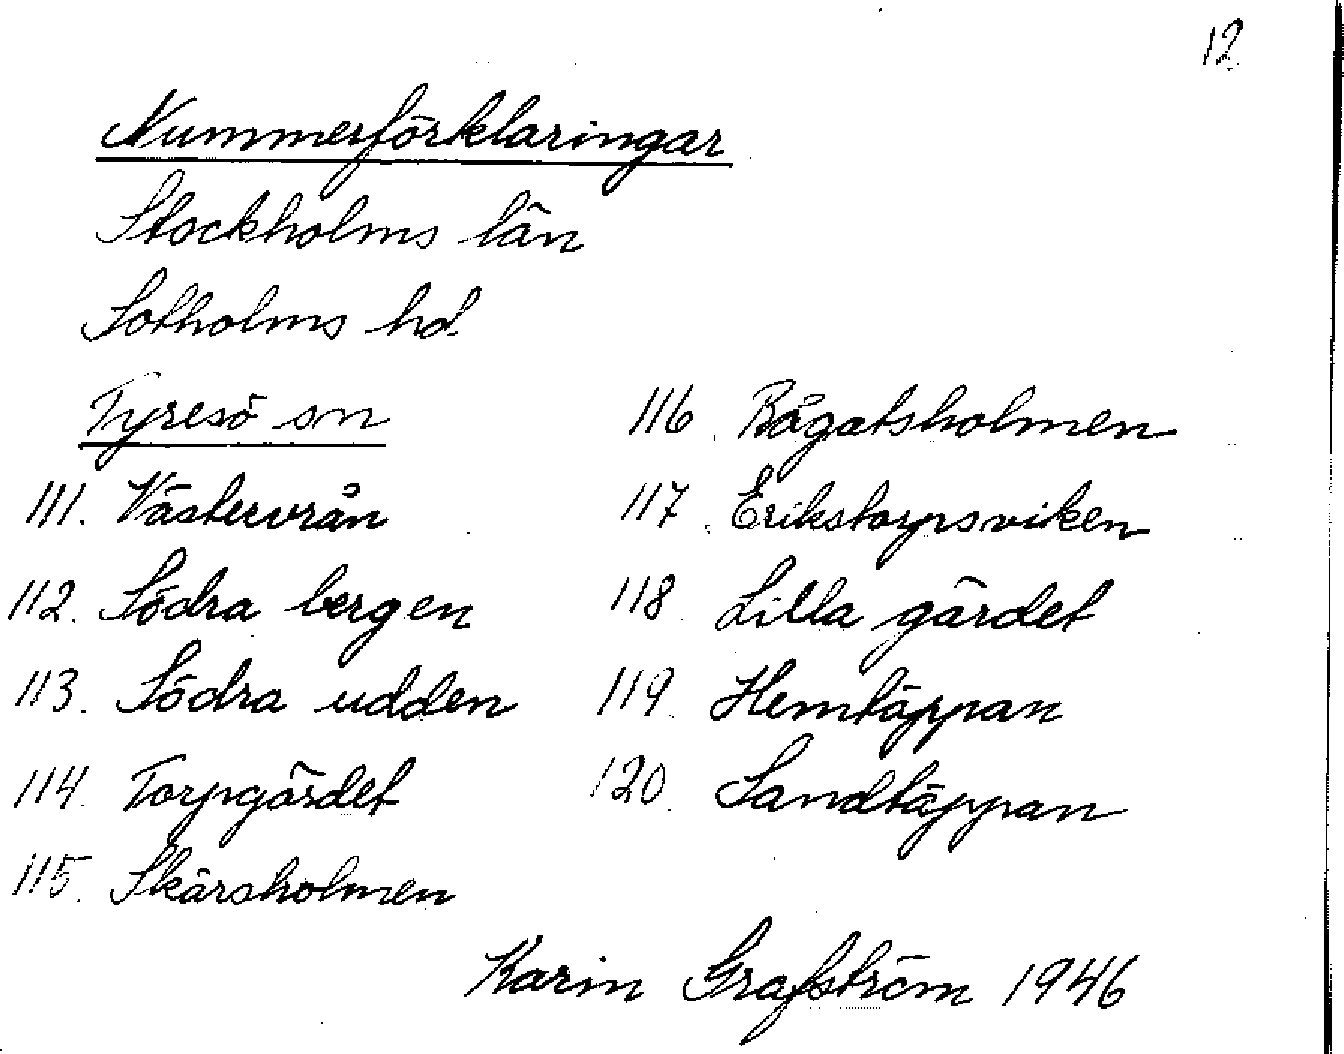 12
Nummerförklaringar
Stockholms län
Sotholms hd.
Tyresö sn
111. Västervrån
112. Södra bergen
113. Södra udden
114. Torpgärdet
115. Skärsholmen
116. Bågatsholmen
117. Erikstorpsviken
118. Lilla gärdet
119. Hemtäppan
120. Sandtäppan
Karin Grafström 1946